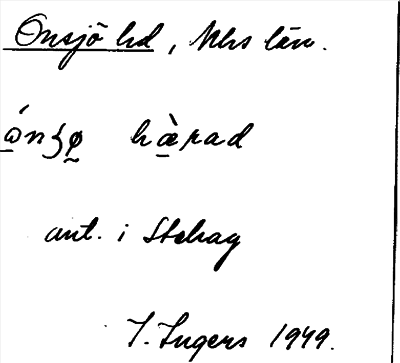 Onsjö hd, Mhs län.
ó̱nʒø̰ hæ̱̀rad
ant. i Stehag
I. Ingers 1949.